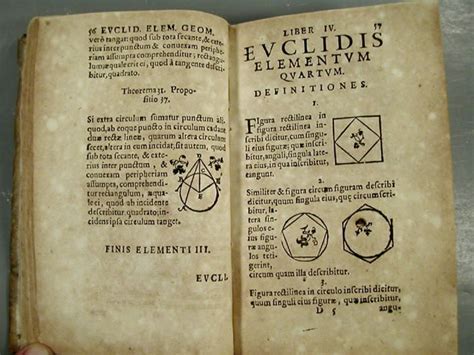 56 EVCLID. ELEM. GEOM.
verò tangat: quod sub tota secante, & ex-
terius inter punctum & conuexam periphe-
riam assumpta comprehenditur, rectangu-
lum, æquale erit ei, quod à tangente descri-
bitur, quadrato.
Theorema 31. Propo-
sitio 37.
Si extra circulum sumatur punctum ali-
quod, ab eoque puncto in circulum cadant
duæ rectæ lineæ, quarum altera circulum
secet, altera in eum incidat, sit autem, quod
sub tota secante, & exte-
rius inter punctum, &
conuexam peripheriam
assumpta, comprehendi-
tur rectangulum, æquale
ei, quod ab incidente
describitur, quadrato, inci-
dens ipsa circulum tanget.
FINIS ELEMENTI III.
EVCLI-
LIBER IV. 57
EVCLIDIS
ELEMENTVM
QVARTVM.
DEFINITIONES.
1.
Figura rectilinea in
figura rectilinea in-
scribi dicitur, cum singu-
li eius figuræ anguli, quæ in-
scribitur, singula late-
ra eius, in qua inscribitur,
tangunt.
2.
Similiter & figura circum figuram describi
dicitur, quum singula eius, quæ circum-
scribitur, la-
tera sin-
gulos e-
ius figu-
ræ angu-
los teti-
gerint,
circum quam illa describitur.
3.
Figura rectilinea in circulo inscribi dicitur,
quum singuli eius figuræ, quæ inscribitur,
D 5 angu-